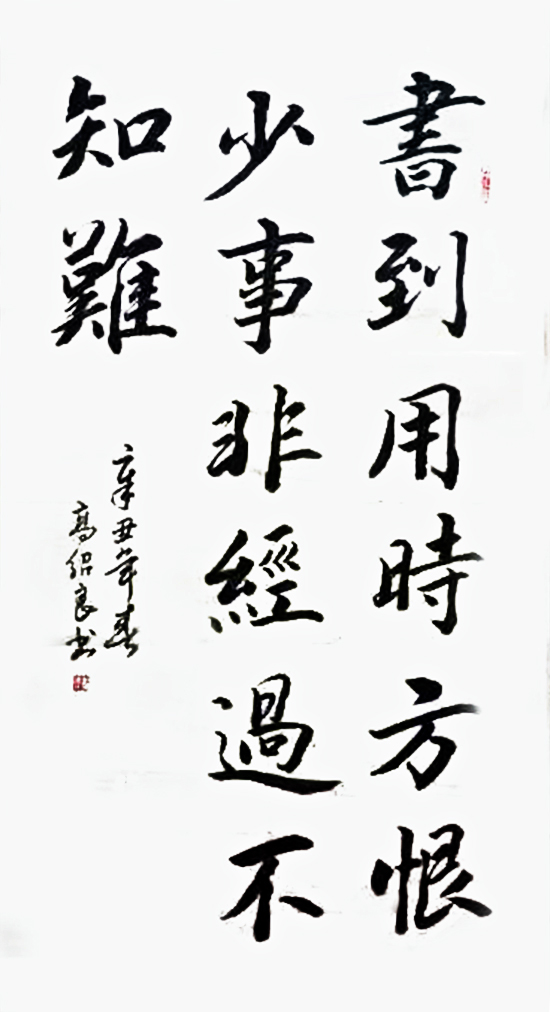 書到用時方恨
少事非經過不
知難
辛丑年春
高紹良书